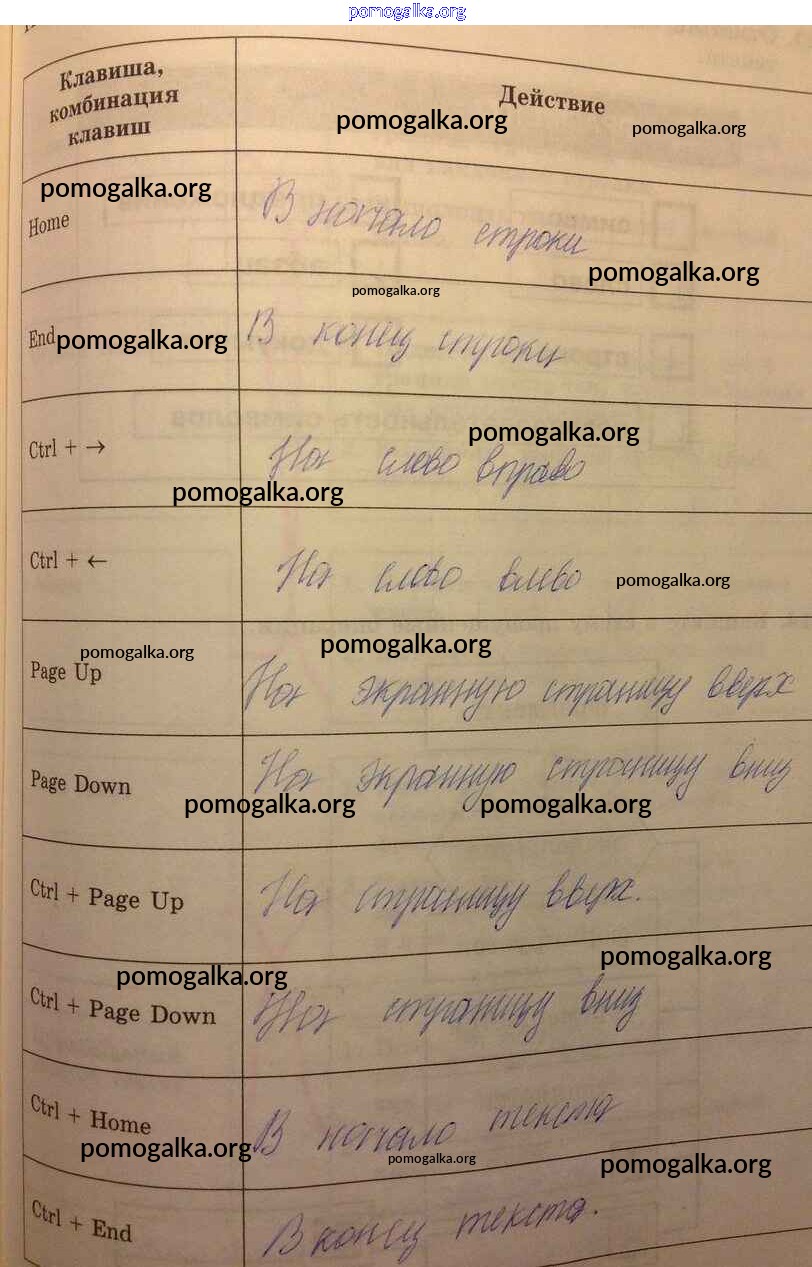 pomogalka.org
Клавиша,
комбинация
клавиш
Действие
pomogalka.org
pomogalka.org
pomogalka.org
Home
В начало строки
pomogalka.org
pomogalka.org
End
pomogalka.org
В конец строки
pomogalka.org
Ctrl + →
На слово вправо
pomogalka.org
Ctrl + ←
На слово влево
pomogalka.org
pomogalka.org
pomogalka.org
Page Up
На экранную страницу вверх
Page Down
На экранную страницу вниз
pomogalka.org
pomogalka.org
Ctrl + Page Up
На страницу вверх.
pomogalka.org
pomogalka.org
Ctrl + Page Down
На страницу вниз
Ctrl + Home
В начало текста
pomogalka.org
pomogalka.org
pomogalka.org
Ctrl + End
В конец текста.